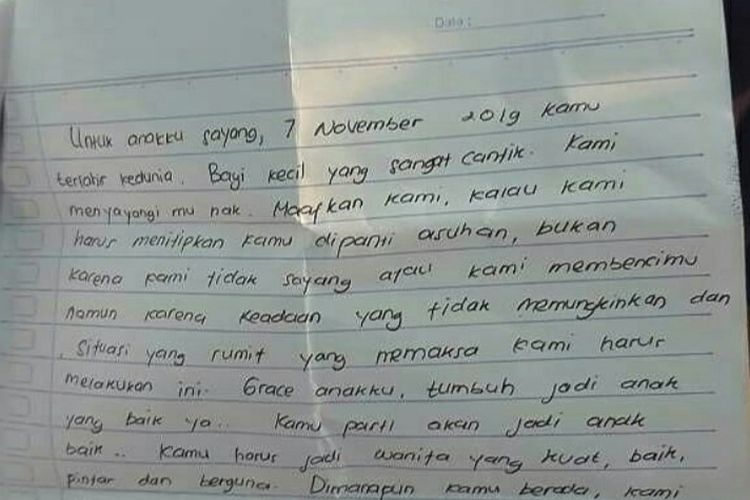 Date :
Untuk anakku sayang, 7 November 2019 kamu
terlahir kedunia. Bayi kecil yang sangat cantik. Kami
menyayangi mu nak. Maafkan kami, kalau kami
harus menitipkan kamu dipanti asuhan, bukan
karena kami tidak sayang atau kami membencimu
namun karena keadaan yang tidak memungkinkan dan
situasi yang rumit yang memaksa kami harus
melakukan ini. Grace anakku, tumbuh jadi anak
yang baik ya.. Kamu pasti akan jadi anak
baik.. Kamu harus jadi wanita yang kuat, baik,
pintar dan berguna. Dimanapun kamu berada, kami